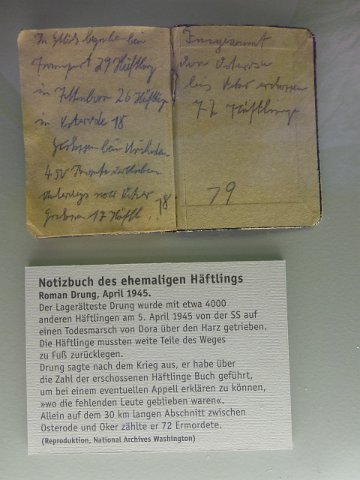 29 Häftling
26 Häftlinge
in Osterode 18
450
18
17 Häftl.
Insgesamt
von Osterode
bis Oker erschossen
72 Häftlinge
79
Notizbuch des ehemaligen Häftlings
Roman Drung, April 1945.
Der Lagerälteste Drung wurde mit etwa 4000
anderen Häftlingen am 5. April 1945 von der SS auf
einen Todesmarsch von Dora über den Harz getrieben.
Die Häftlinge mussten weite Teile des Weges
zu Fuß zurücklegen.
Drung sagte nach dem Krieg aus, er habe über
die Zahl der erschossenen Häftlinge Buch geführt,
um bei einem eventuellen Appell erklären zu können,
»wo die fehlenden Leute geblieben waren«.
Allein auf dem 30 km langen Abschnitt zwischen
Osterode und Oker zählte er 72 Ermordete.
(Reproduktion, National Archives Washington)